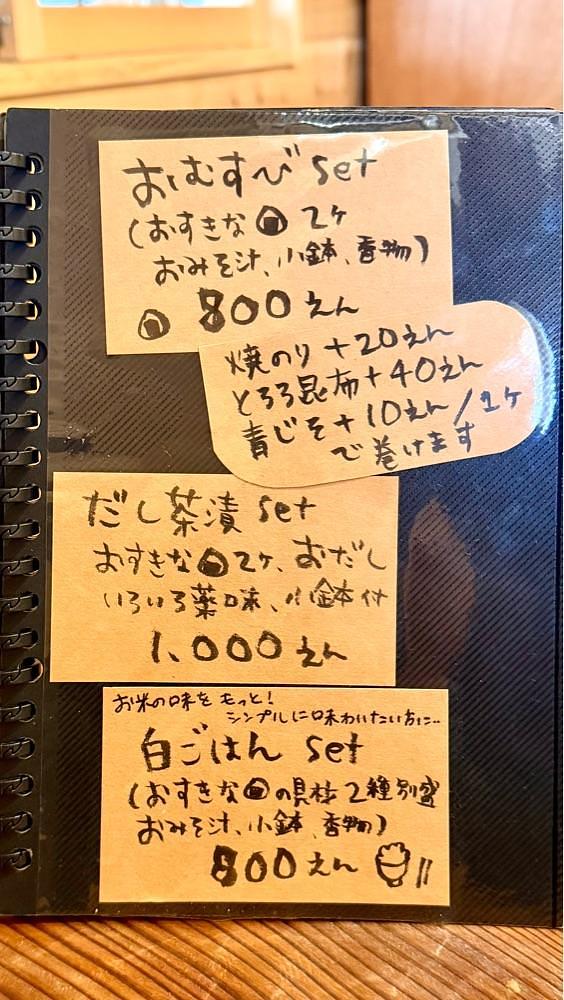 おむすび set
(おすきな🍙2ヶ
おみそ汁、小鉢、香物)
🍙 800えん
焼のり+20えん
とろろ昆布+40えん
青じそ+10えん/1ヶ
で巻けます
だし茶漬 set
おすきな🍙2ヶ、おだし
いろいろ薬味、小鉢付
1,000えん
お米の味をもっと!
シンプルに味わいたい方に..
白ごはん set
(おすきな🍙の具材2種別盛
おみそ汁、小鉢、香物)
800えん